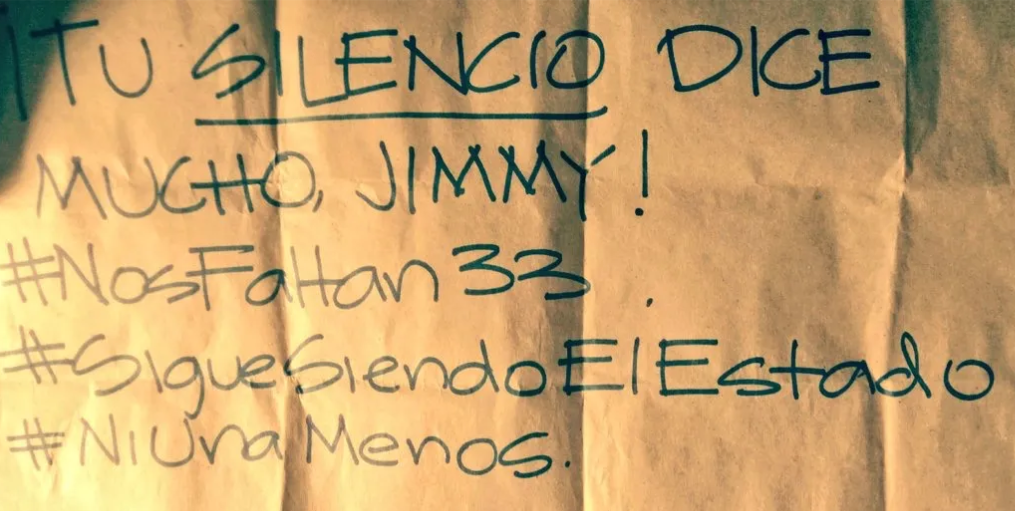 ¡TU SILENCIO DICE
MUCHO, JIMMY!
#NosFaltan33.
#SigueSiendoElEstado
#NiUnaMenos.